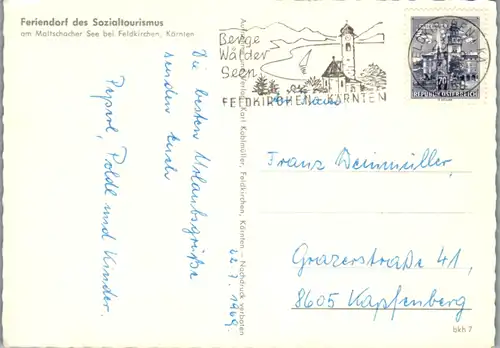 Feriendorf des Sozialtourismus
am Maltschacher See bei Feldkirchen, Kärnten
Die besten Urlaubsgrüße
senden Euch
Pepperl, Poldl und Kinder.
22.7.1969.
Aufnahme und Verlag: Karl Kublmüller, Feldkirchen, Kärnten — Nachdruck verboten
Berge
Wälder
Seen
FELDKIRCHEN KÄRNTEN
70
REPUBLIK ÖSTERREICH
Franz Deinmüller,
Grazerstraße 41,
8605 Kapfenberg
bkh 7